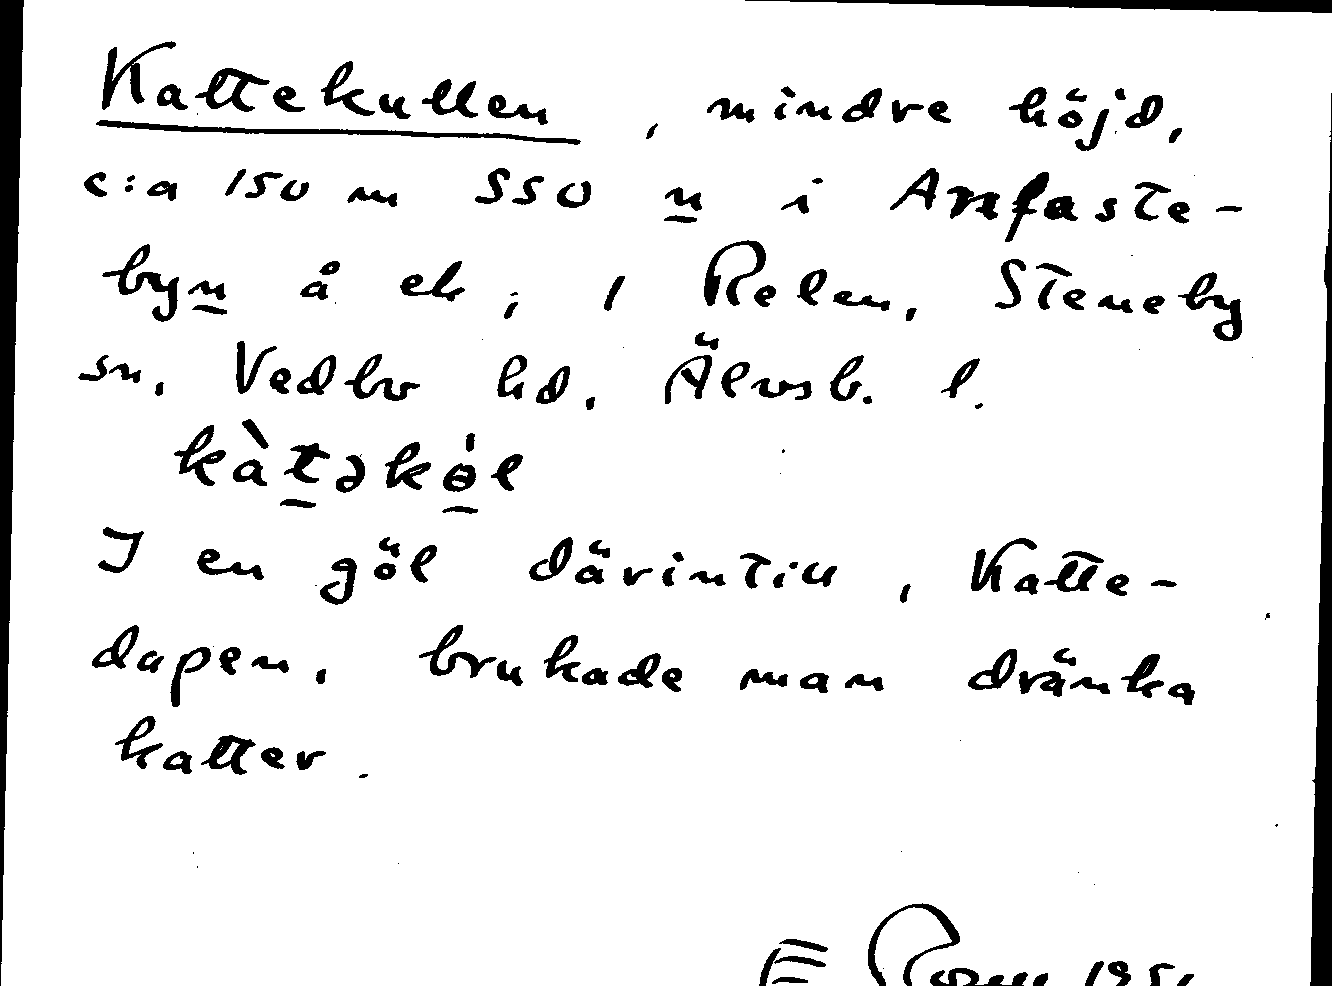 Kattekullen, mindre höjd,
c:a 150 m SSO n i Anfaste-
byn å ek, 1 Relen, Steneby
sn, Vedbo hd, Älvsb. l.
kàtəkɵ̍l
I en göl därintill, Katte-
dapen, brukade man dränka
katter.
E